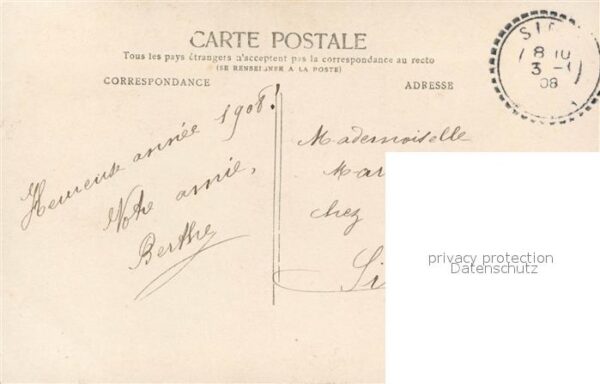 CARTE POSTALE
Tous les pays étrangers n'acceptent pas la correspondance au recto
(SE RENSEIGNER A LA POSTE)
CORRESPONDANCE
ADRESSE
8 10
3 -1
08
Heureuse année 1908!
Votre amie,
Berthe
Mademoiselle
Mar
chez
Si
privacy protection
Datenschutz